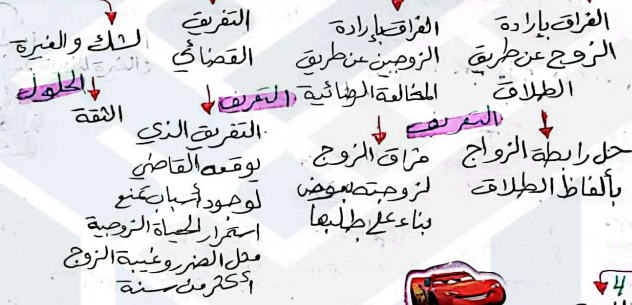 الفراق بإرادة
الزوج عن طريق
الطلاق
التعريف
حل رابطة الزواج
بألفاظ الطلاق
الفراق بإرادة
الزوجين عن طريق
المخالعة الرضائية
فراق الزوج
لزوجته بعوض
بناء على طلبها
التفريق
القضائي
التعريف
التفريق الذي
يوقعه القاضي
لوجود أسباب تمنع
استمرار الحياة الزوجية
مثل الضرر وغيبة الزوج
أكثر من سنة
لشك والغيرة
الحلول
الثقة
4